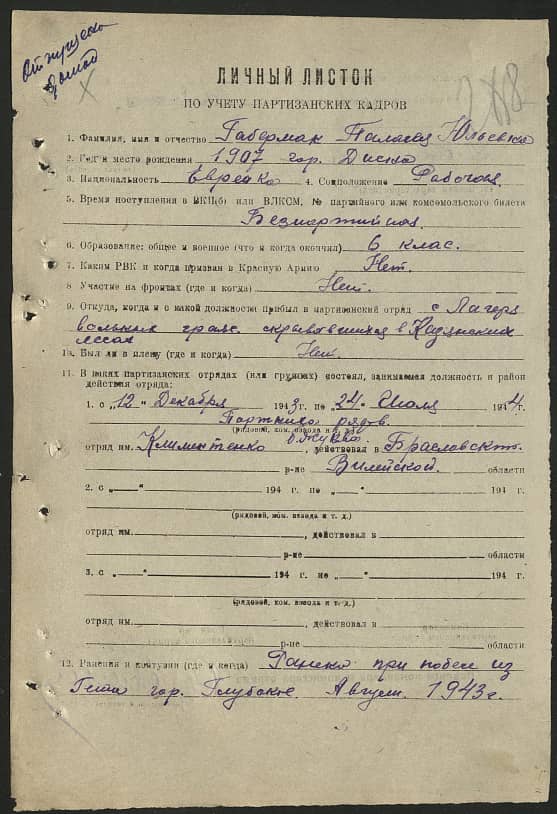 Отпущена
домой
ЛИЧНЫЙ ЛИСТОК
ПО УЧЕТУ ПАРТИЗАНСКИХ КАДРОВ
1. Фамилия, имя и отчество Габерман Юльевна
2. Год и место рождения 1907 гор. Дисна
3. Национальность Еврейка 4. Соцположение Рабочая
5. Время поступления в ВКП(б) или ВЛКСМ, № партийного или комсомольского билета
Безпартийная
6. Образование: общее и военное (что и когда окончил) 6 клас.
7. Каким РВК и когда призван в Красную Армию Нет.
8 Участие на фронтах (где и когда) Нет.
9. Откуда, когда и с какой должности прибыл в партизанский отряд с Лагеря
вольных гражд. скрывавшихся в Казянских
лесах
10. Был ли в плену (где и когда) Нет.
11. В каких партизанских отрядах (или группах) состоял, занимаемая должность и район
действия отряда:
1. с "12" Декабря 1943 г. по "24" Июля 1944 г.
Портниха рядов.
(рядовой, ком. взвода и т. д.)
отряд им. Климентенко б. Жукова, действовал в Браславском
р-не Вилейской области
2. с "—" 194 г по "—" 194 г
(рядовой, ком. взвода и т. д.)
отряд им. , действовал в
р-не области
3. с "—" 194 г по "—" 194 г
(рядовой, ком. взвода и т. д.)
отряд им. , действовал в
р-не области
12. Ранения и контузии (где и когда) Ранена при побеге из
Гетто гор. Глубокое. Август. 1943 г.